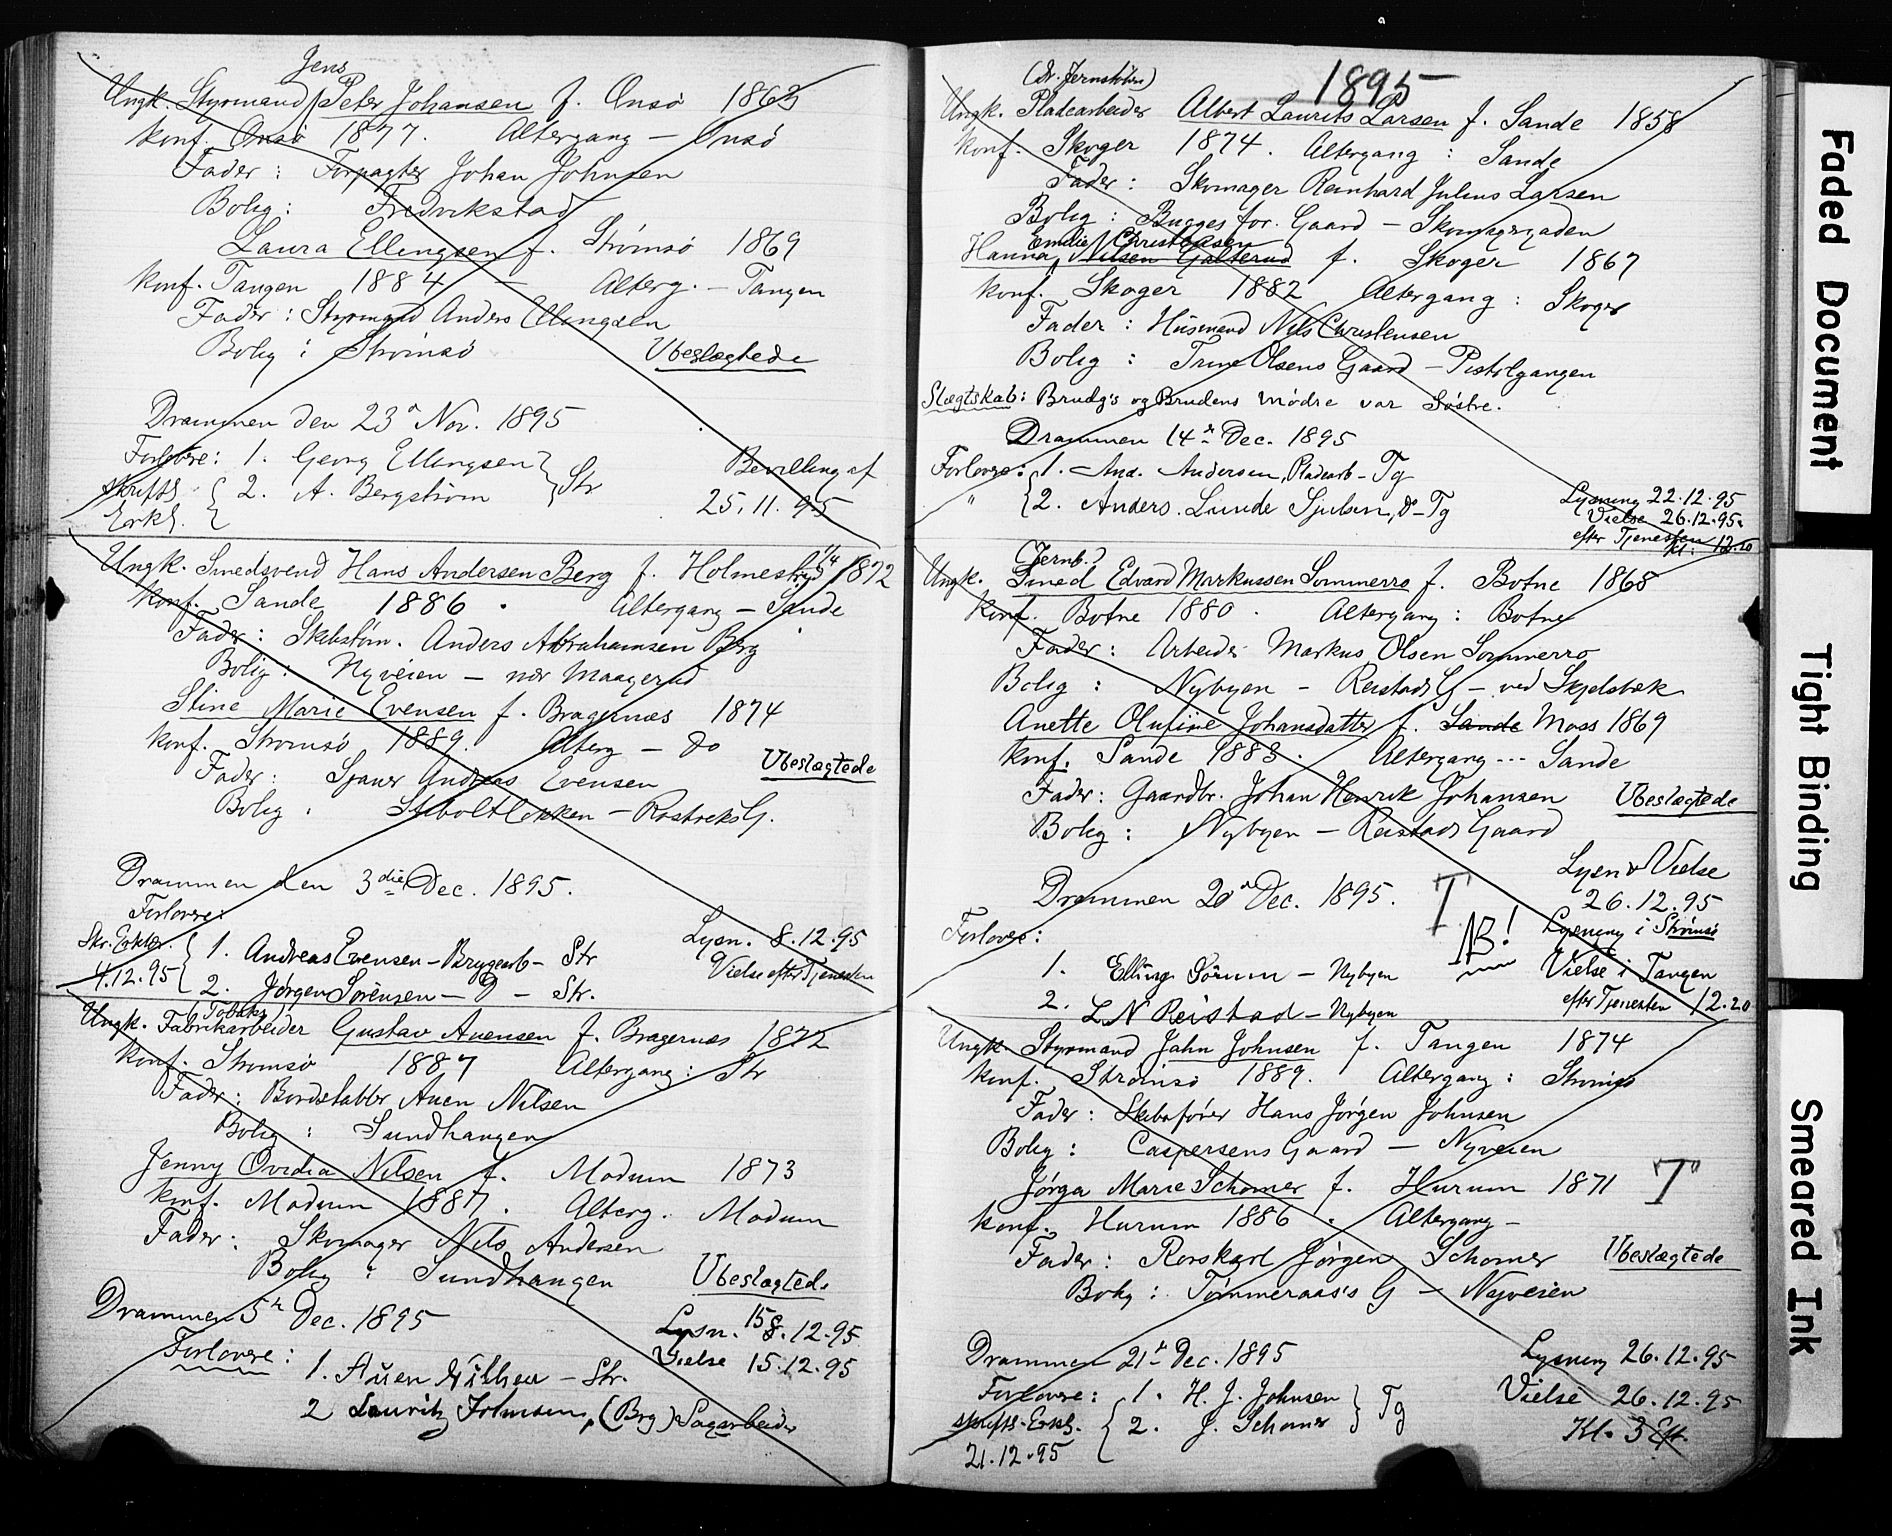 Jens
Ungk. Styrmand Peter Johansen f. Onsø 1863
Konf. Onsø 1877. Altergang - Onsø
Fader: Forpagter Johan Johnsen
Bolig: Fredrikstad
Laura Ellingsen f. Strømsø 1869
Konf. Tangen 1884 - Alterg. - Tangen
Fader: Styrmand Anders Ellingsen
Bolig: Strømsø Ubeslægtede
Drammen den 23 Nov. 1895
Forlovere: 1. Georg Ellingsen } Str
skriftl. { 2. A. Bergstrøm Bevilling af
Erkl. 25.11.95
Ungk. Smedsvend Hans Andersen Berg f. Holmestrand 1/4 1872
Konf. Sande 1886. Altergang - Sande
Fader: Skibstøm. Anders Abrahamsen Berg
Bolig: Nyveien - nær Maagerud
Stine Marie Evensen f. Bragernæs 1874
Konf. Strømsø 1889. Alterg - do
Ubeslægtede
Fader: Sjauer Andreas Evensen
Bolig: - RostreksG.
Drammen den 3die Dec. 1895.
Forlovere:
Skr. Erklær. { 1. Andreas Evensen - Brygearb - Str Lysn. 8.12.95
4.12.95 { 2. Jørgen Sørensen - D - Str. Vielse efter Tjenesten
(Tobaks)
Ungk. Fabrikarbeider Gustav Auensen f. Bragernæs 1872
Konf. Strømsø 1887 Altergang: Str
Fader: Bordstabler Auen Nilsen
Bolig: Sundhaugen
Jenny Ovidia Nilsen f. Modum 1873
Konf. Modum 1887. Alterg. Modum
Fader: Skomager Nils Andersen
Bolig: Sundhaugen Ubeslægtede
Drammen 5te Dec. 1895 Lysn. 15 8.12.95
Forlovere: Vielse 15.12.95
1. Auen Nilsen - Str.
2 Lauritz Johnsens, (Brg) Sagarbeider
1895
(Dr. Jernstøberi)
Ungk. Pladearbeider Albert Laurits Larsen f. Sande 1858
Konf. Skoger 1874. Altergang: Sande
Fader: Skomager Reinhard Julius Larsen
Bolig: Bugges for. Gaard - Skomagergaden
Emilie Christensen
Hanna Nilsen Galterud f. Skoger 1867
Konf. Skoger 1882 Altergang: Skoger
Fader: Husmand Nils Christensen
Bolig: Trine Olsens Gaard - Pistolgangen
Slægtskab: Brudg's og Brudens Mødre var Søstre.
Drammen 14 Dec. 1895
Forlovere: { 1. And. Andersen, Pladearb - Tg
" { 2. Anders. Lunde Sjulsen, D - Tg Lysning 22.12.95
Vielse 26.12.95.
efter Tjenesten
Kl: 12.20
(Jernb.)
Ungk. Smed Edvard Markussen Sommerro f. Botne 1868
Konf. Botne 1880. Altergang: Botne
Fader: Arbeider Markus Olsen Sommerro
Bolig: Nybyen - Reistads G - ved Skjelsbæk
Anette Olufine Johansdatter f. Sande Moss 1869
Konf. Sande 1883. Altergang --- Sande
Fader: Gaardbr. Johan Henrik Johansen Ubeslægtede
Bolig: Nybyen - Reistads Gaard
Lysn & Vielse
Drammen 20 Dec. 1895. T 26.12.95
Forlovere: NB! Lysning i Strømsø
1. Elling Sørum - Nybyen Vielse i Tangen
2. L N Reistad - Nybyen efter Tjenesten 12.20
Ungk. Styrmand Jahn Johnsen f. Tangen 1874
Konf. Strømsø 1889. Altergang: Strømsø
Fader: Skibsfører Hans Jørgen Johnsen
Bolig: Caspersens Gaard - Nyveien
Jørga Marie Schomer f. Hurum 1871 "T"
Konf. Hurum 1886. Altergang -
Fader: Rorskarl Jørgen Schomer Ubeslægtede
Bolig: Tømmeraas's G - Nyveien
Drammen 21 Dec. 1895 Lysning 26.12.95
Forlovere: { 1. H. J. Johnsen } Tg Vielse 26.12.95
skriftl. Erkl. { 2. J. Schomer Kl. 3 Eft.
21.12.95
Faded Document
Tight Binding
Smeared Ink